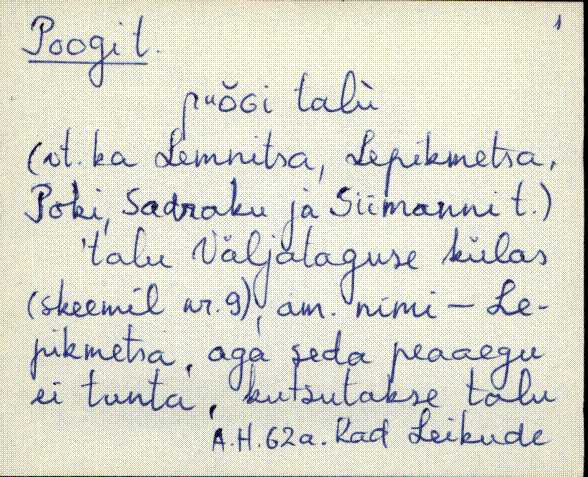 1
Poogi t.
puŏGi talù
(vt. ka Lemnitsa, Lepikmetsa,
Poki, Sadraku ja Siimanni t.)
'talu Väljataguse külas
(skeemil nr. 9), am. nimi – Le-
pikmetsa, aga seda peaaegu
ei tunta, kutsutakse talu
A.H. 62a. Kad Leikude